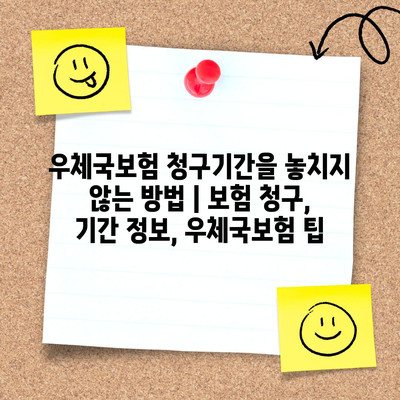 우체국보험 청구기간을 놓치지
않는 방법 | 보험 청구,
기간 정보, 우체국보험 팁